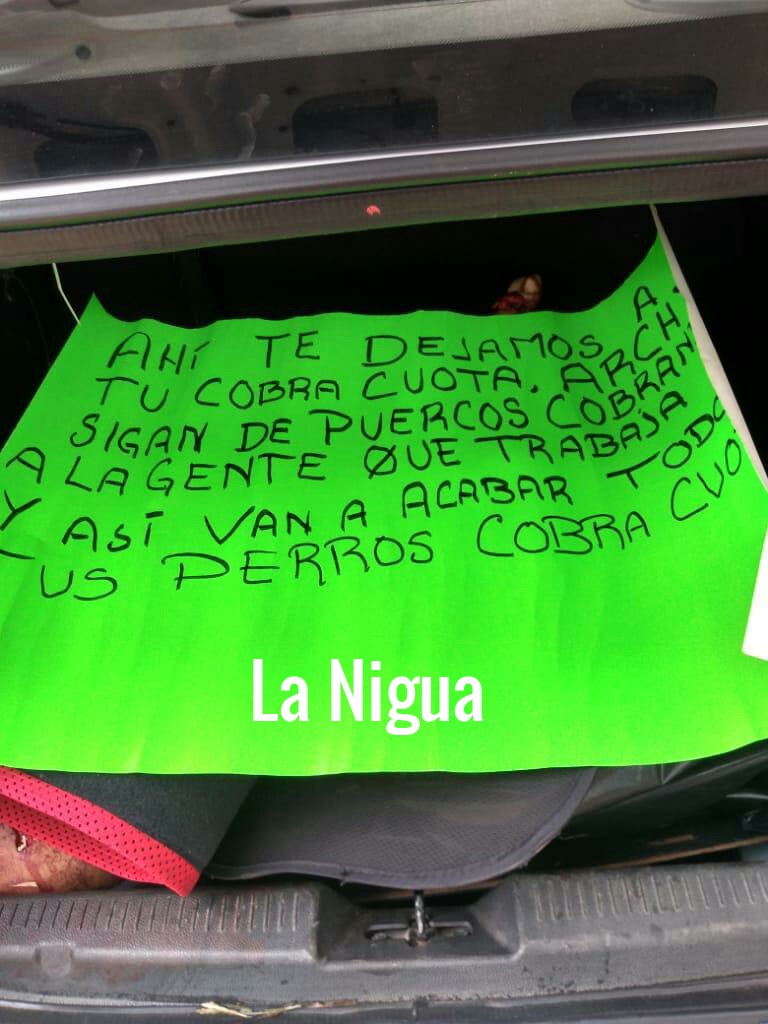 AHÍ TE DEJAMOS A
TU COBRA CUOTA. ARCHI
SIGAN DE PUERCOS COBRAN
A LA GENTE QUE TRABAJA
Y ASÍ VAN A ACABAR TODO
US PERROS COBRA CUO
La Nigua